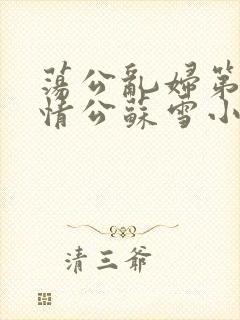 蕩公亂婦第
情公蘇雪小
清三爺